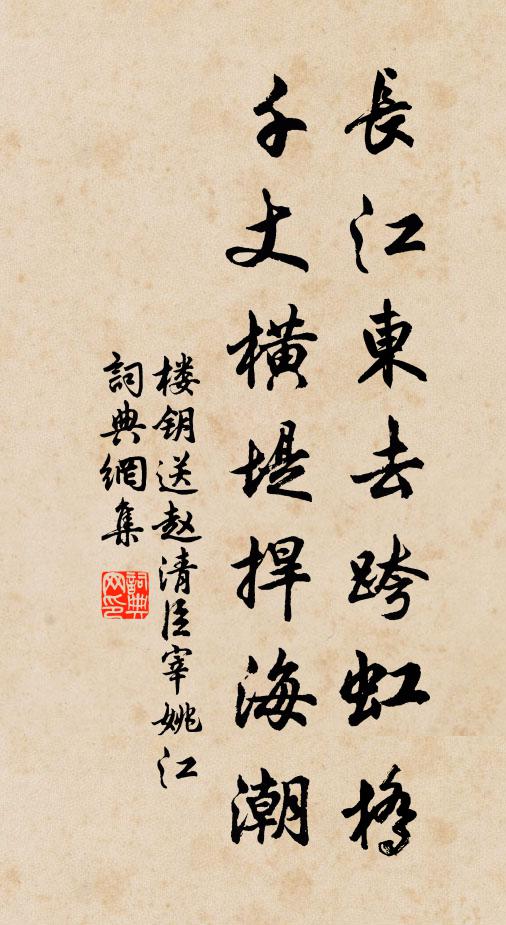 長江東去跨虹橋
千丈橫堤捍海潮
楼钥送赵清臣宰姚江
詞典網集
詞典網印